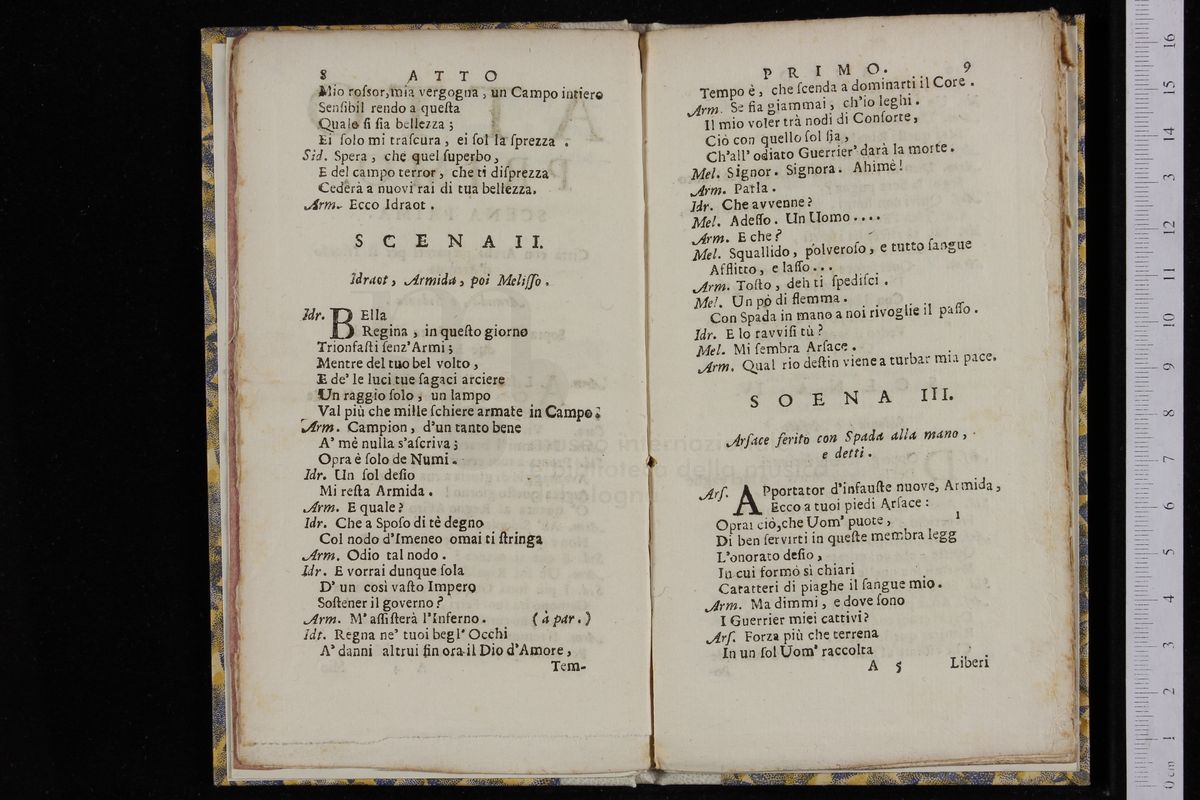 8 ATTO
Mio roſsor,mia vergogna, un Campo intiero
Senſibil rendo a queſta
Quale ſi ſia bellezza;
Ei ſolo mi traſcura, ei ſol la ſprezza.
Sid. Spera, che quel ſuperbo,
E del campo terror, che ti diſprezza
Cederà a nuovi rai di tua bellezza.
Arm. Ecco Idraot.
SCENA II.
Idraot, Armida, poi Meliſſo.
Idr. BElla
Regina, in queſto giorno
Trionfaſti ſenz'Armi;
Mentre del tuo bel volto,
E de' le luci tue ſagaci arciere
Un raggio ſolo, un lampo
Val più che mille ſchiere armate in Campo.
Arm. Campion, d'un tanto bene
A' mè nulla s'aſcriva;
Opra è ſolo de Numi.
Idr. Un ſol deſio
Mi reſta Armida.
Arm. E quale?
Idr. Che a Spoſo di tè degno
Col nodo d'Imeneo omai ti ſtringa
Arm. Odio tal nodo.
Idr. E vorrai dunque ſola
D' un così vaſto Impero
Soſtener il governo?
Arm. M' aſſiſterà l'Inferno. (à par.)
Idt. Regna ne' tuoi begl' Occhi
A' danni altrui fin ora il Dio d'Amore,
Tem-
PRIMO. 9
Tempo è, che ſcenda a dominarti il Core.
Arm. Se fia giammai, ch'io leghi.
Il mio voler trà nodi di Conſorte,
Ciò con quello ſol ſia,
Ch'all' odiato Guerrier' darà la morte.
Mel. Signor. Signora. Ahimè!
Arm. Parla.
Idr. Che avvenne?
Mel. Adeſſo. Un Uomo....
Arm. E che?
Mel. Squallido, polveroſo, e tutto ſangue
Afflitto, e laſſo...
Arm. Toſto, deh ti ſpediſci.
Mel. Un pò di flemma.
Con Spada in mano a noi rivoglie il paſſo.
Idr. E lo ravviſi tù?
Mel. Mi ſembra Arſace.
Arm. Qual rio deſtin viene a turbar mia pace.
SOENA III.
Arſace ferito con Spada alla mano,
e detti.
Arſ. APportator d'infauſte nuove, Armida,
Ecco a tuoi piedi Arſace:
Oprai ciò,che Uom' puote,
Di ben ſervirti in queſte membra legg
L'onorato deſio,
In cui formò sì chiari
Caratteri di piaghe il ſangue mio.
Arm. Ma dimmi, e dove ſono
I Guerrier miei cattivi?
Arſ. Forza più che terrena
In un ſol Uom' raccolta
A 5 Liberi